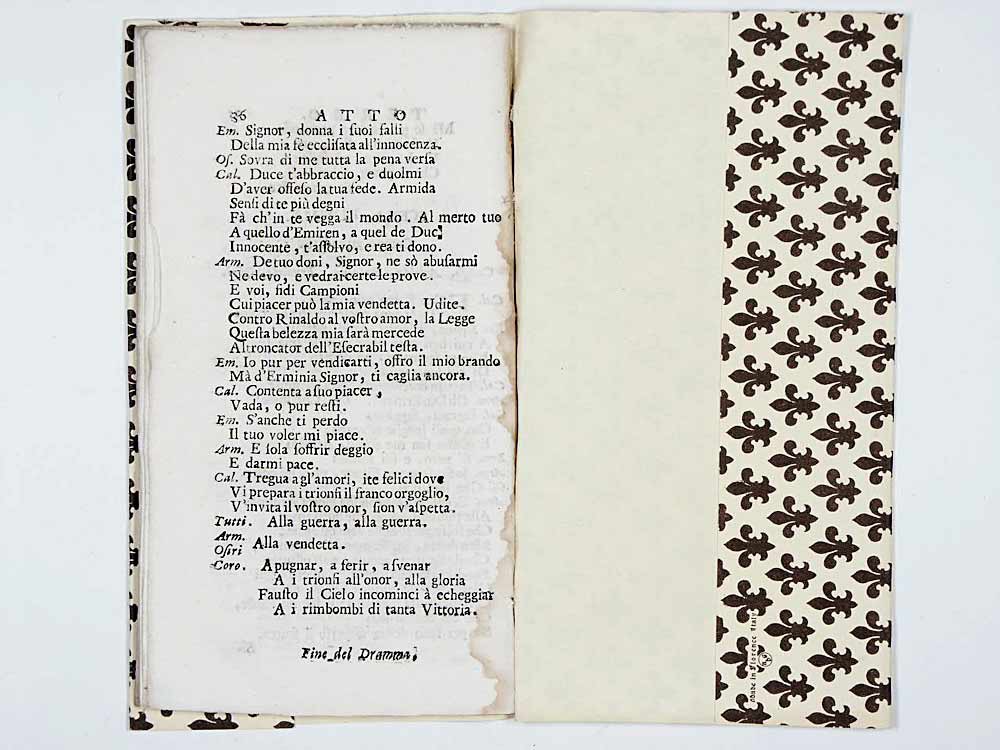 36 ATTO
Em. Signor, donna i ſuoi falli
Della mia fè eccliſata all'innocenza.
Oſ. Sovra di me tutta la pena verſa
Cal. Duce t'abbraccio, e duolmi
D'aver offeſo la tua fede. Armida
Senſi di te più degni
Fà ch'in te vegga il mondo. Al merto tuo
A quello d'Emiren, a quel de Duci
Innocente, t'aſſolvo, e rea ti dono.
Arm. De tuo doni, Signor, ne sò abuſarmi
Ne devo, e vedrai certe le prove.
E voi, fidi Campioni
Cui piacer può la mia vendetta. Udite.
Contro Rinaldo al voſtro amor, la Legge
Queſta belezza mia ſarà mercede
Al troncator dell'Eſecrabil teſta.
Em. Io pur per vendicarti, offro il mio brando
Mà d'Erminia Signor, ti caglia ancora.
Cal. Contenta a ſuo piacer,
Vada, o pur reſti.
Em. S'anche ti perdo
Il tuo voler mi piace.
Arm. E ſola ſoffrir deggio
E darmi pace.
Cal. Tregua agl'amori, ite felici dove
Vi prepara i trionfi il franco orgoglio,
V'invita il voſtro onor, ſion v'aſpetta.
Tutti. Alla guerra, alla guerra.
Arm.
Oſiri Alla vendetta.
Coro. A pugnar, a ferir, a ſvenar
A i trionfi all'onor, alla gloria
Fauſto il Cielo incominci à echeggiar
A i rimbombi di tanta Vittoria.
Fine del Dramma.
Made in Florence Italy